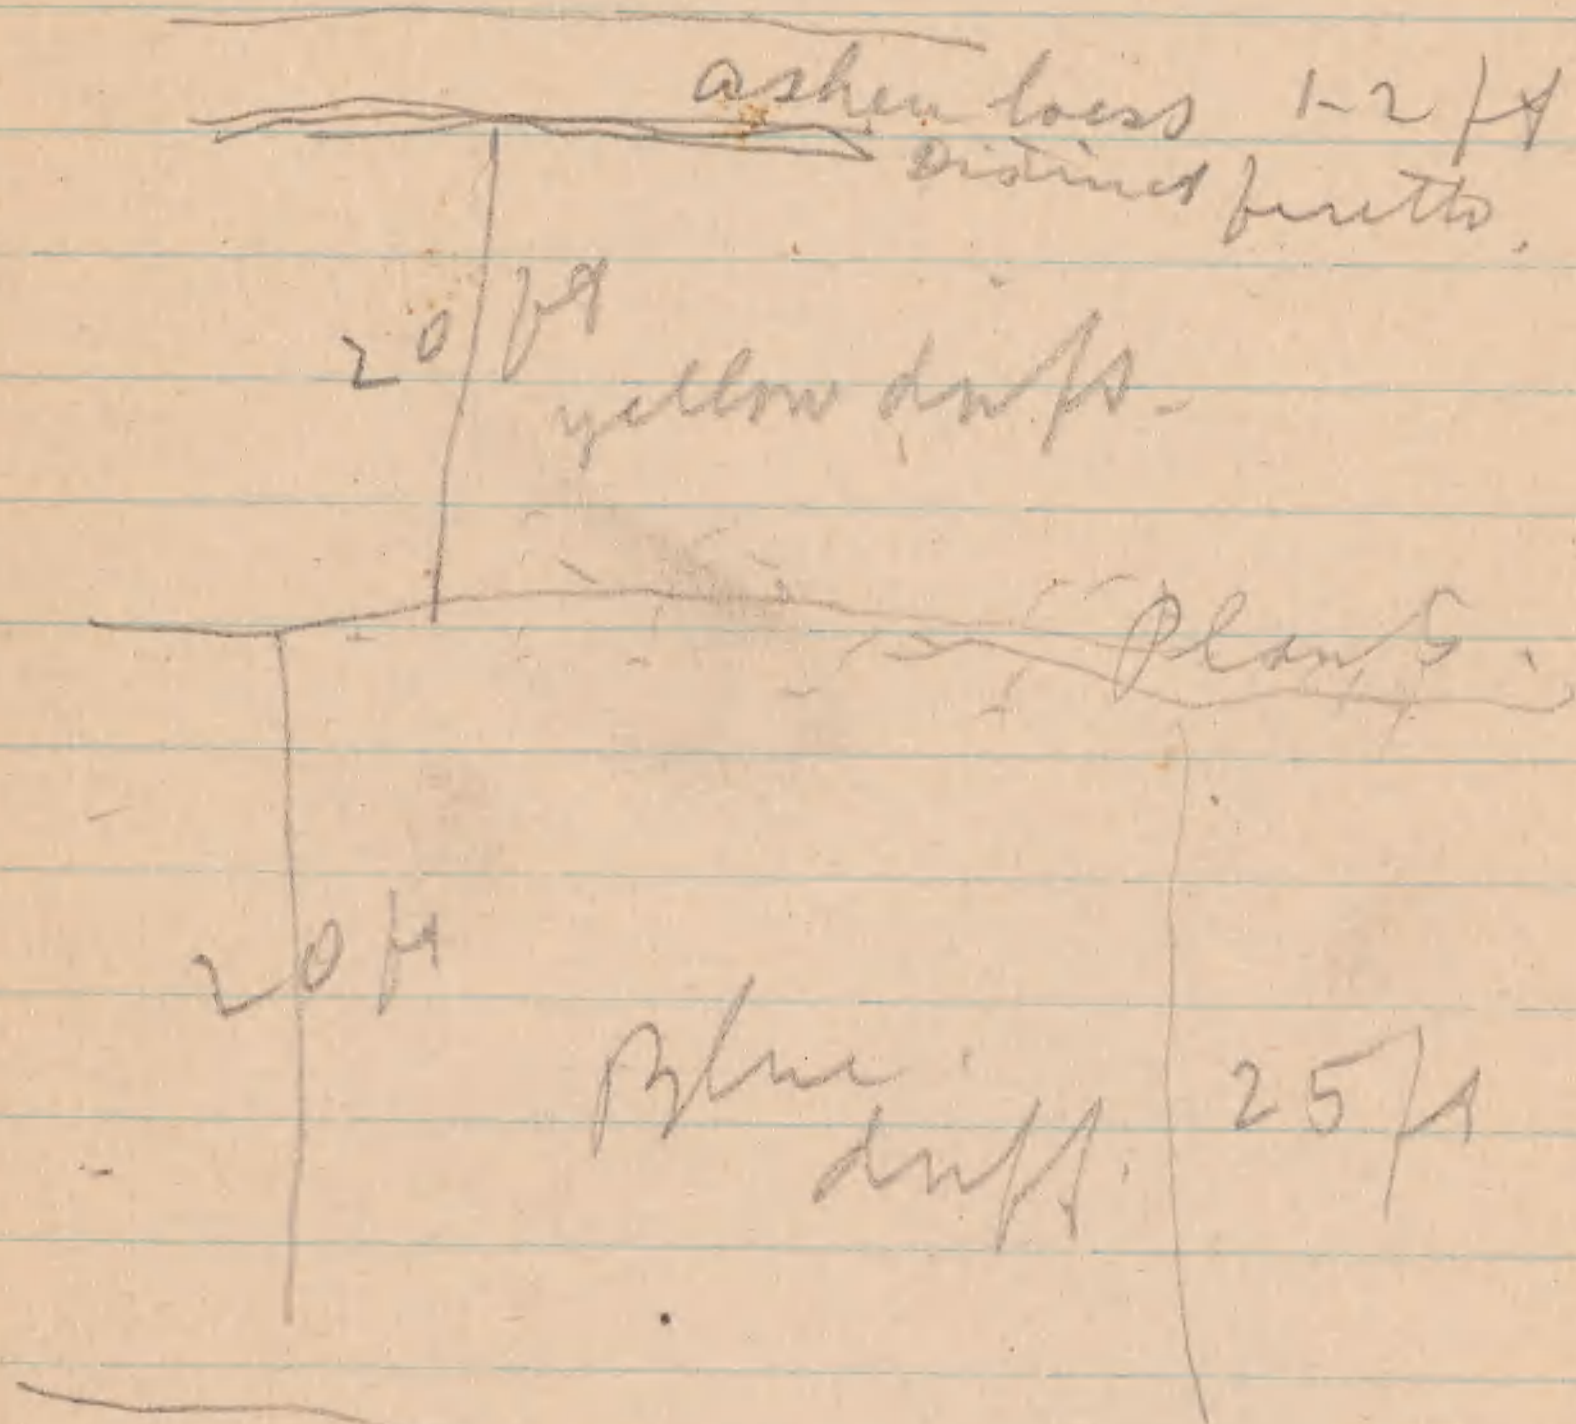 ashen loess 1-2 ft
Distinct ferretto.
20 ft
yellow drift.
Plants.
20 ft
Blue
drift.
25 ft